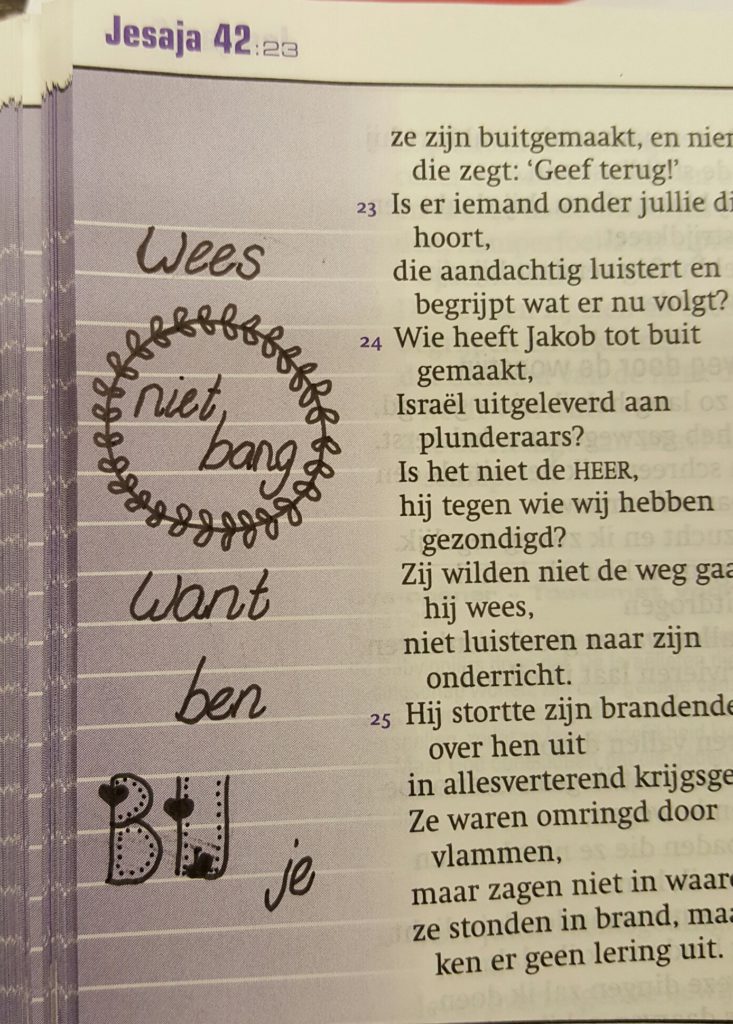 Jesaja 42:23
Wees
niet,
bang
want
ben
BIJ
je
ze zijn buitgemaakt, en
die zegt: ‘Geef terug!’
23 Is er iemand onder jullie
hoort,
die aandachtig luistert en
begrijpt wat er nu volgt?
24 Wie heeft Jakob tot buit
gemaakt,
Israël uitgeleverd aan
plunderaars?
Is het niet de HEER,
hij tegen wie wij hebben
gezondigd?
Zij wilden niet de weg
hij wees,
niet luisteren naar zijn
onderricht.
25 Hij stortte zijn brandende
over hen uit
in allesverterend
Ze waren omringd door
vlammen,
maar zagen niet in
ze stonden in brand,
ken er geen lering uit.